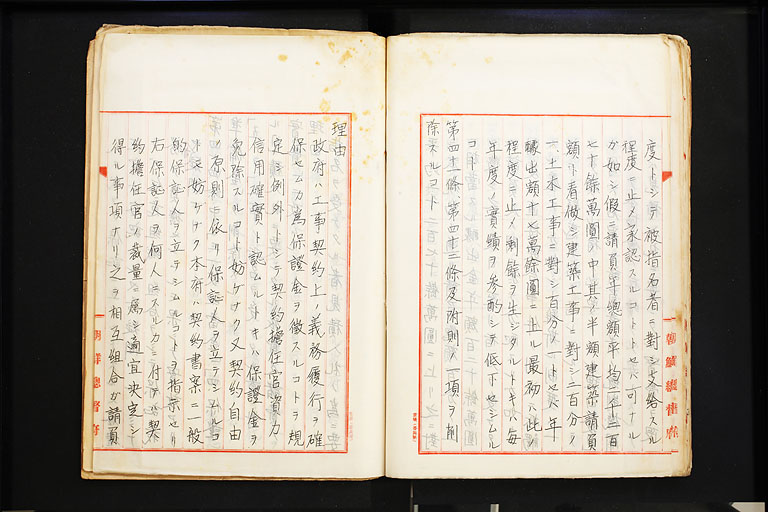 度トシテ被指名者ニ對シ支給スル
程度ニ止メ承認スルコトトセハ可ナル
カ如シ假ニ請負年總額平均二千二百
七十餘萬圓ノ中其ノ半額建築請負
額ト看做シ建築工事ニ對シ二百分ノ
一土木工事ニ對シ百分ノ一トセハ年
醵出額十七萬餘圓ニ上ル最初ハ此ノ
程度ニ止メ剩餘ヲ生シタルトキハ每
年度ノ實績ヲ參酌シテ低下セシムル
コト
第四十一條第四十三條及附則ノ一項ヲ削
除スルコト
理由
政府ハ工事契約上ノ義務履行ヲ確
保セムカ爲保證金ヲ徵スルコトヲ規
定シ例外トシテ契約擔任官資力
信用確實ト認ムルトキハ保證金ヲ
免除スルコト妨ケナク又契約自由
ノ原則ニ依リ保證人ヲ立テシムルコ
トモ妨ケナク本府ハ契約書案ニ一般
的保証人ヲ立テシムルコトヲ指示セリ
右保証人ヲ何人ニスルカニ付テハ契
約擔任官ノ裁量ニ屬シ適宜決定シ
得ル事項ナリ之ヲ相互組合カ請負
朝鮮總督府
朝鮮總督府